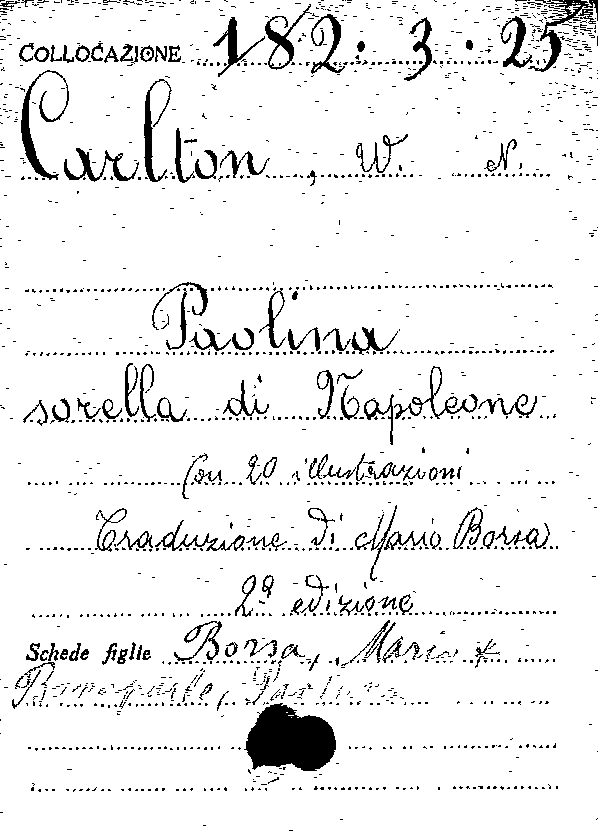 COLLOCAZIONE 182. 3. 25
Carlton, W. N.
Paolina
sorella di Napoleone
Con 20 illustrazioni
Traduzione di Mario Borsa
2ª edizione
Schede figlie Borsa, Mario *
Bonaparte, Paolina